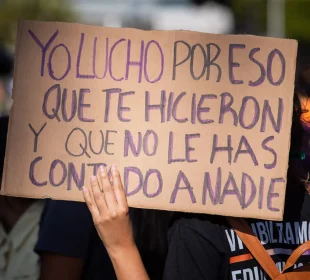 YO LUCHO POR ESO
QUE TE HICIERON
Y QUE NO LE HAS
CONTADO A NADIE